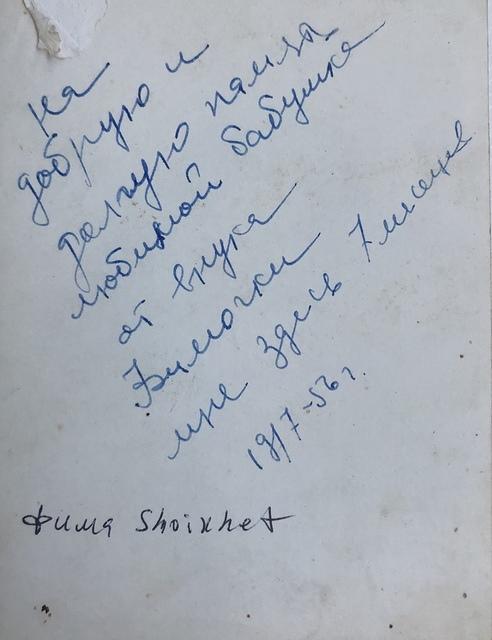 на
добрую и
долгую память
любимой бабушке
от внука
Фимочки
мне здесь 7 месяцев
19/7-56 г.
Фима Shoixhet